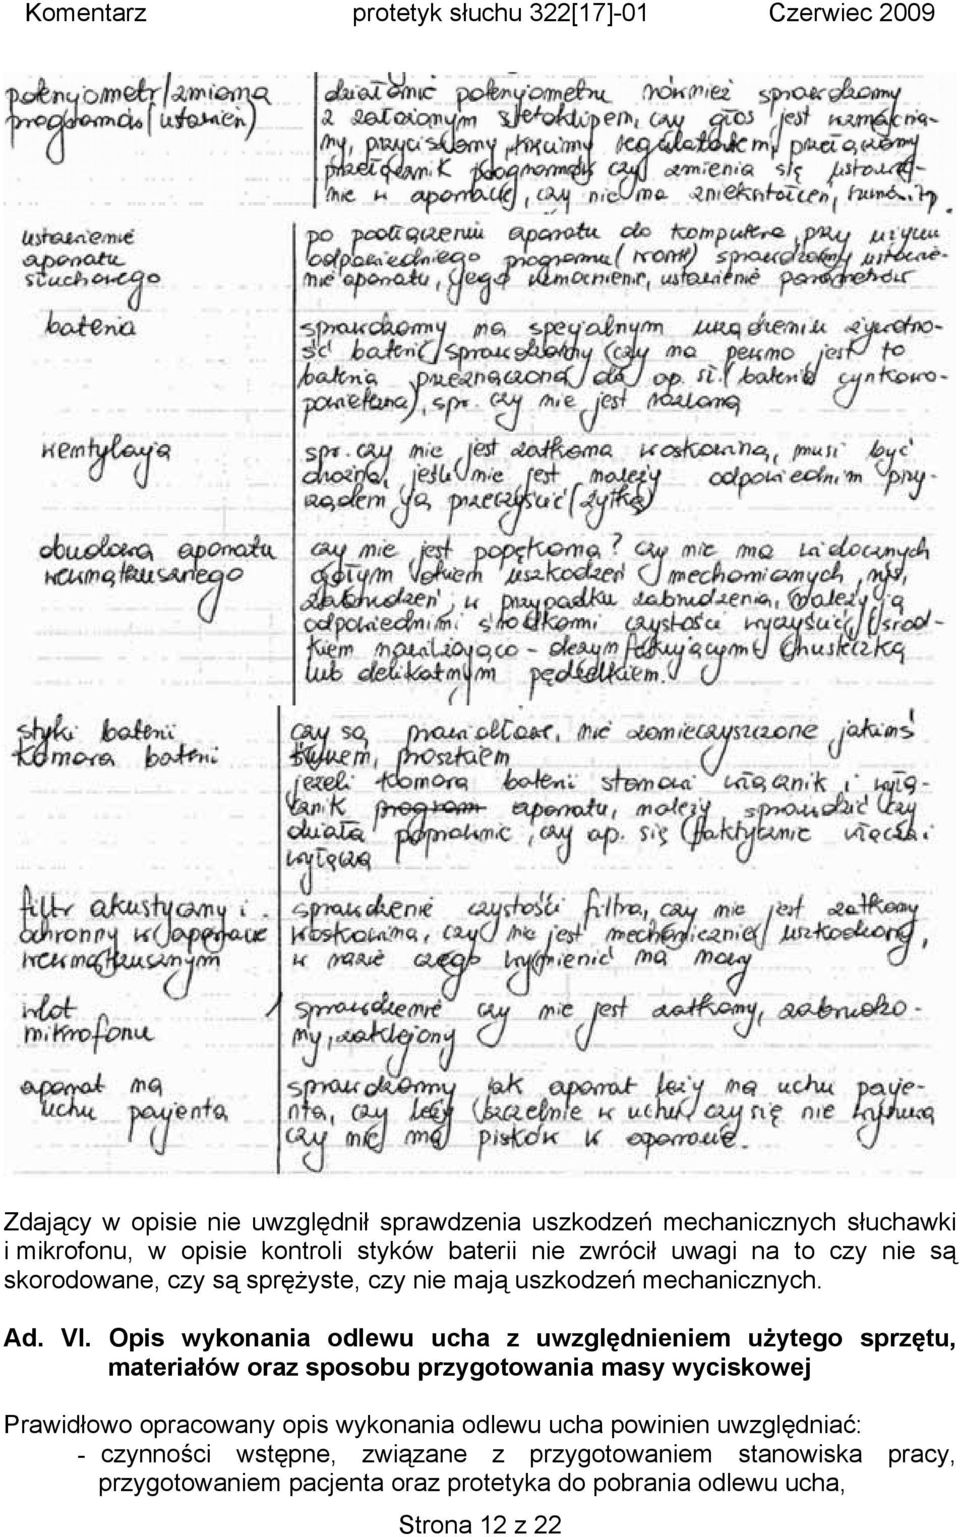 Komentarz protetyk słuchu 322[17]-01 Czerwiec 2009
potencjometr/zmiana
programów (ustawień)
działanie potencjometru również sprawdzamy
z założonym stetoklipem, czy głos jest wzmacnia-
ny, przyciskamy, kręcimy regulatorem, przełączamy
przełącznik programów czy zmienia się ustawie-
nie w aparacie, czy nie ma zniekształceń, szumów itp.
ustawienie
aparatu
słuchowego
po podłączeniu aparatu do komputera, przy użyciu
odpowiedniego programu ( ) sprawdzamy ustawie-
nie aparatu, jego wzmocnienie, ustawienie parametrów
bateria
sprawdzamy na specjalnym urządzeniu żywotno-
ść baterii, sprawdzamy czy na pewno jest to
bateria przeznaczona do ap. sł. (bateria cynkowo-
powietrzna), spr. czy nie jest rozlana
wentylacja
spr. czy nie jest zatkana woskowiną, musi być
drożna, jeśli nie jest należy odpowiednim przy-
rządem ją przeczyścić (żyłką)
obudowa aparatu
wewnątrzusznego
czy nie jest popękana? czy nie ma widocznych
gołym okiem uszkodzeń mechanicznych, np.
zabrudzeń, w przypadku zabrudzenia, należy ją
odpowiednimi środkami czystości wyczyścić, środ-
kiem nawilżająco - dezynfekującym, chusteczką
lub delikatnym pędzelkiem.
styki baterii
komora baterii
czy są prawidłowe, nie zanieczyszczone jakimś
 proszkiem
jeżeli komora baterii stanowi włącznik i wyłą-
cznik program aparatu, należy sprawdzić czy
działa poprawnie, czy ap. się faktycznie włącza i
wyłącza
filtr akustyczny i
ochronny w aparacie
wewnątrzusznym
sprawdzenie czystości filtra, czy nie jest zatkany
woskowiną, czy nie jest mechanicznie uszkodzony,
w razie czego wymienić na nowy
wlot
mikrofonu
sprawdzenie czy nie jest zatkany, zabrudzo-
ny, zaklejony
aparat na
uchu pacjenta
sprawdzamy jak aparat leży na uchu pacje-
nta, czy leży szczelnie w uchu, czy się nie wysuwa
czy nie ma pisków w aparacie.
Zdający w opisie nie uwzględnił sprawdzenia uszkodzeń mechanicznych słuchawki
i mikrofonu, w opisie kontroli styków baterii nie zwrócił uwagi na to czy nie są
skorodowane, czy są sprężyste, czy nie mają uszkodzeń mechanicznych.
Ad. VI. Opis wykonania odlewu ucha z uwzględnieniem użytego sprzętu,
materiałów oraz sposobu przygotowania masy wyciskowej
Prawidłowo opracowany opis wykonania odlewu ucha powinien uwzględniać:
- czynności wstępne, związane z przygotowaniem stanowiska pracy,
przygotowaniem pacjenta oraz protetyka do pobrania odlewu ucha,
Strona 12 z 22